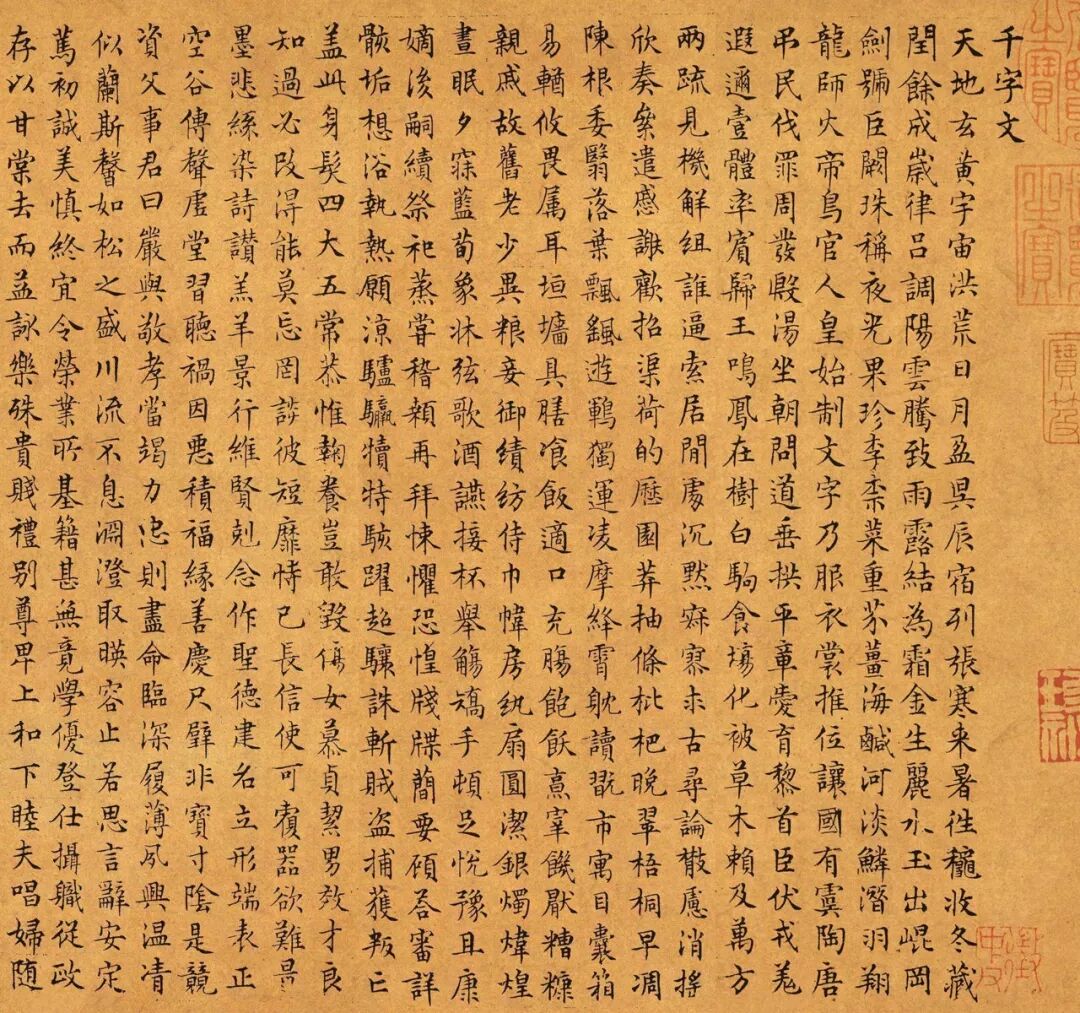 千字文
天地玄黃宇宙洪荒日月盈昃辰宿列張寒来暑往穐收冬藏
閏餘成歲律吕調陽雲騰致雨露結為霜金生麗水玉出崐岡
劍號巨闕珠稱夜光果珍李柰菜重芥薑海鹹河淡鱗潛羽翔
龍師火帝鳥官人皇始制文字乃服衣裳推位讓國有虞陶唐
弔民伐罪周發殷湯坐朝問道垂拱平章愛育黎首臣伏戎羌
遐邇壹體率賓歸王鳴鳳在樹白駒食場化被草木賴及萬方
兩疏見機解組誰逼索居閒處沉默寂寥求古尋論散慮消搖
欣奏累遣慼謝歡招渠荷的歷園莽抽條枇杷晚翠梧桐早凋
陳根委翳落葉飄颻遊鵾獨運凌摩絳霄耽讀翫市寓目囊箱
易輶攸畏属耳垣墻具膳飡飯適口充腸飽飫烹宰饑厭糟糠
親戚故舊老少異粮妾御績紡侍巾帷房紈扇圓潔銀燭煒煌
晝眠夕寐藍荀象牀弦歌酒讌接杯舉觴矯手頓足悅豫且康
嫡後嗣續祭祀蒸甞稽顙再拜悚懼恐惶牋牒簡要顧答審詳
骸垢想浴執熱願涼驢騾犢特駭躍超驤誅斬賊盗捕獲叛亡
盖此身髮四大五常恭惟鞠養豈敢毀傷女慕貞絜男效才良
知過必改得能莫忘罔談彼短靡恃己長信使可覆器欲難量
墨悲絲染詩讃羔羊景行維賢剋念作聖德建名立形端表正
空谷傳聲虛堂習聽禍因惡積福緣善慶尺璧非寶寸陰是競
資父事君曰嚴與敬孝當竭力忠則盡命臨深履薄夙興温凊
似蘭斯馨如松之盛川流不息淵澄取暎容止若思言辭安定
篤初誠美慎終宜令榮業所基籍甚無竟學優登仕攝職從政
存以甘棠去而益詠樂殊貴賤禮别尊卑上和下睦夫唱婦随